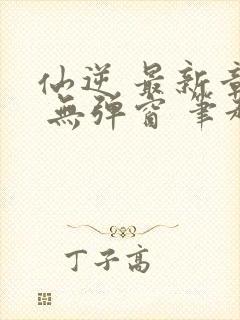 仙逆 最新章
無弹窗 筆
丁子高